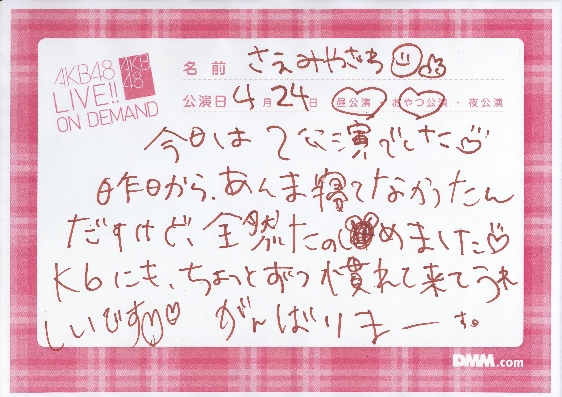 AKB48
LIVE!!
ON DEMAND
AKB
48
名前 さえみやざわ
公演日 4月24日 昼公演・おやつ公演・夜公演
今日は2公演でした
昨日から、あんま寝てなかったん
だすけど、全然たのしめました
K6にも、ちょっとずつ慣れて来てうれ
しいです がんばりまーす。
DMM.com